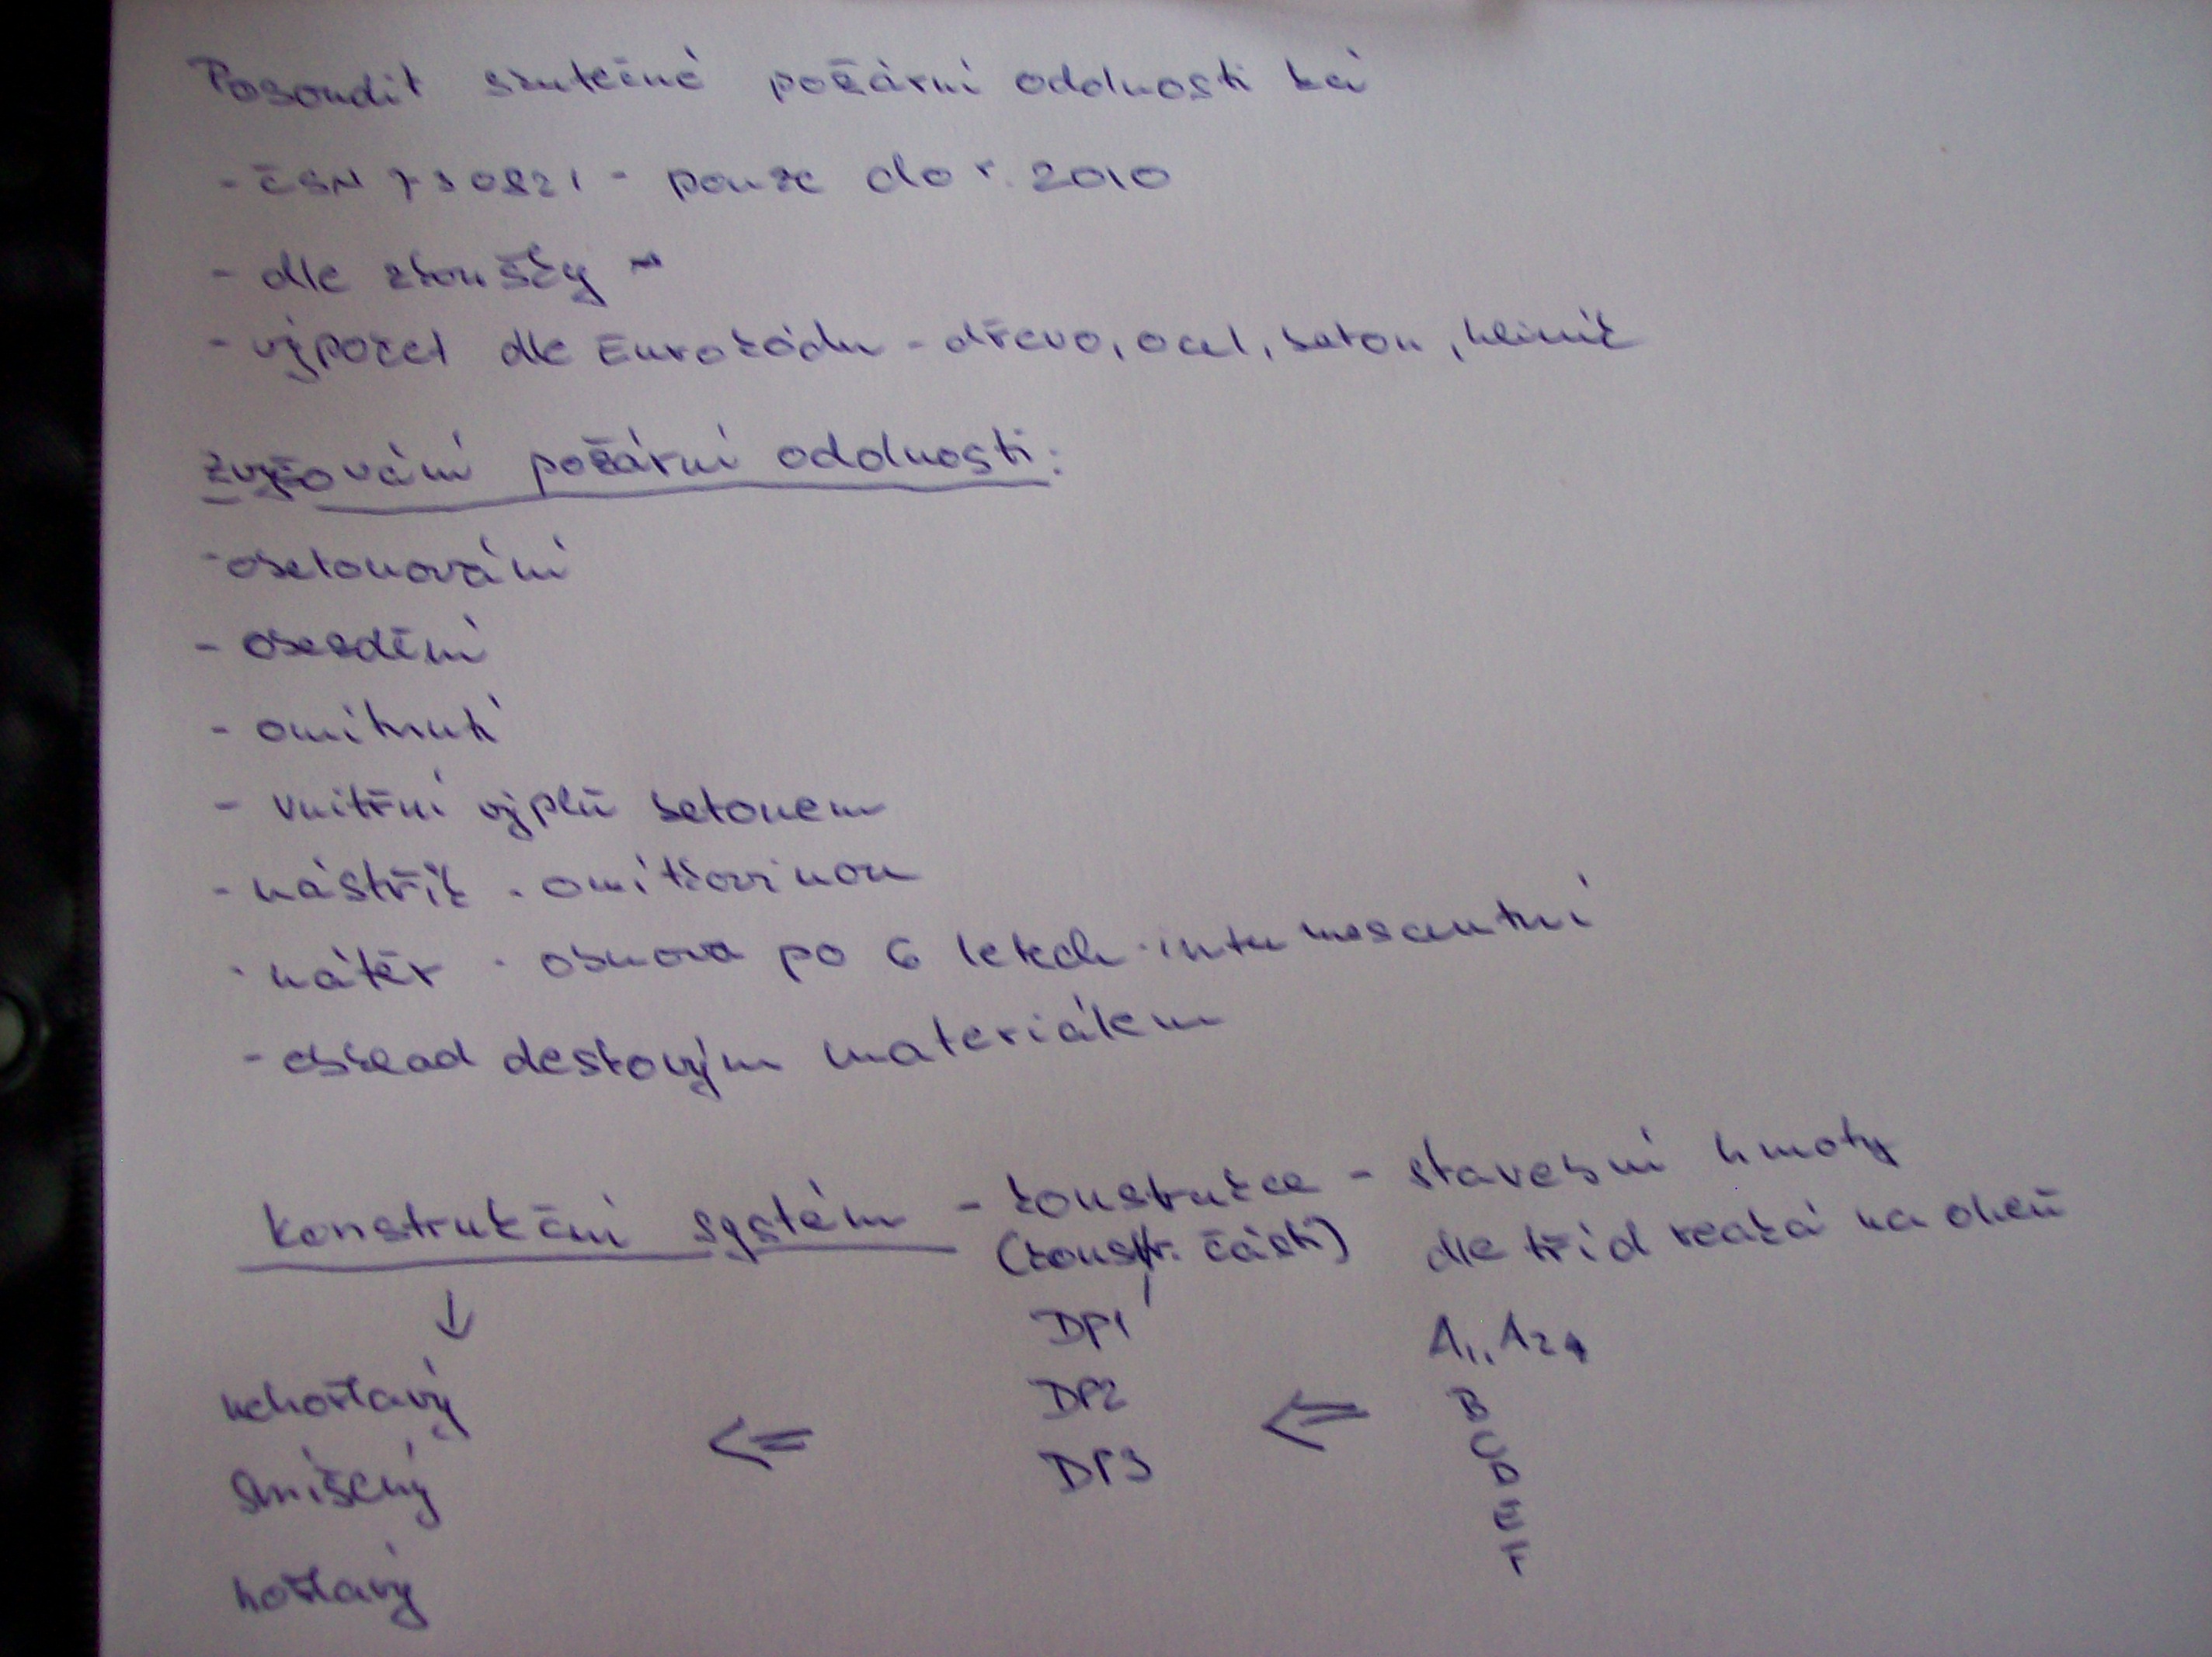 Posoudit skutečné požární odolnosti kcí
- ČSN 730821 - pouze do r. 2010
- dle zkoušky -
- výpočet dle Eurokódu - dřevo, ocel, beton, hliník
Zvyšování požární odolnosti:
- obetonování
- obezdění
- omítnutí
- vnitřní výplň betonem
- nástřik - omítkovinou
- nátěr - obnova po 6 letech - intumescentní
- obklad deskovým materiálem
Konstrukční systém - konstrukce - stavební hmoty
(konstr. části) dle tříd reakcí na oheň
↓ DP1 A1, A2
nehořlavý DP2 B
⇐ ⇐ C
smíšený DP3 D
E
hořlavý F